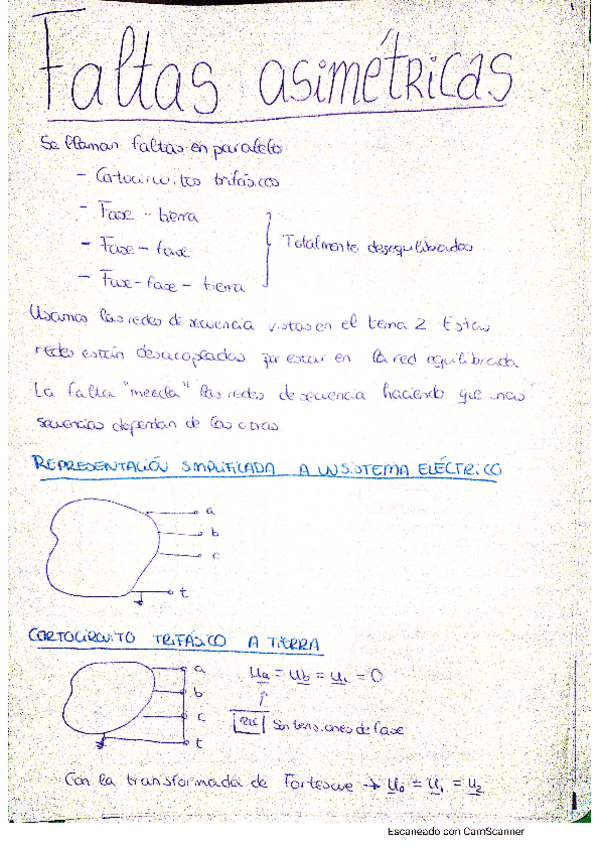 Faltas asimétricas
Se llaman faltas en paralelo
- Cortocircuitos trifásicos
- Fase - tierra
- Fase - fase
- Fase - fase - tierra
Totalmente desequilibradas
Usamos las redes de secuencia vistas en el tema 2. Estas
redes están desacopladas por estar en la red equilibrada
La falta "mezcla" las redes de secuencia haciendo que unas
secuencias dependan de las otras.
REPRESENTACIÓN SIMPLIFICADA A UN SISTEMA ELÉCTRICO
a
b
c
t
CORTOCIRCUITO TRIFÁSICO A TIERRA
a
b
c
t
Ua = Ub = Uc = 0
Son tensiones de fase
Con la transformada de Fortescue → U0 = U1 = U2
1
Escaneado con CamScanner